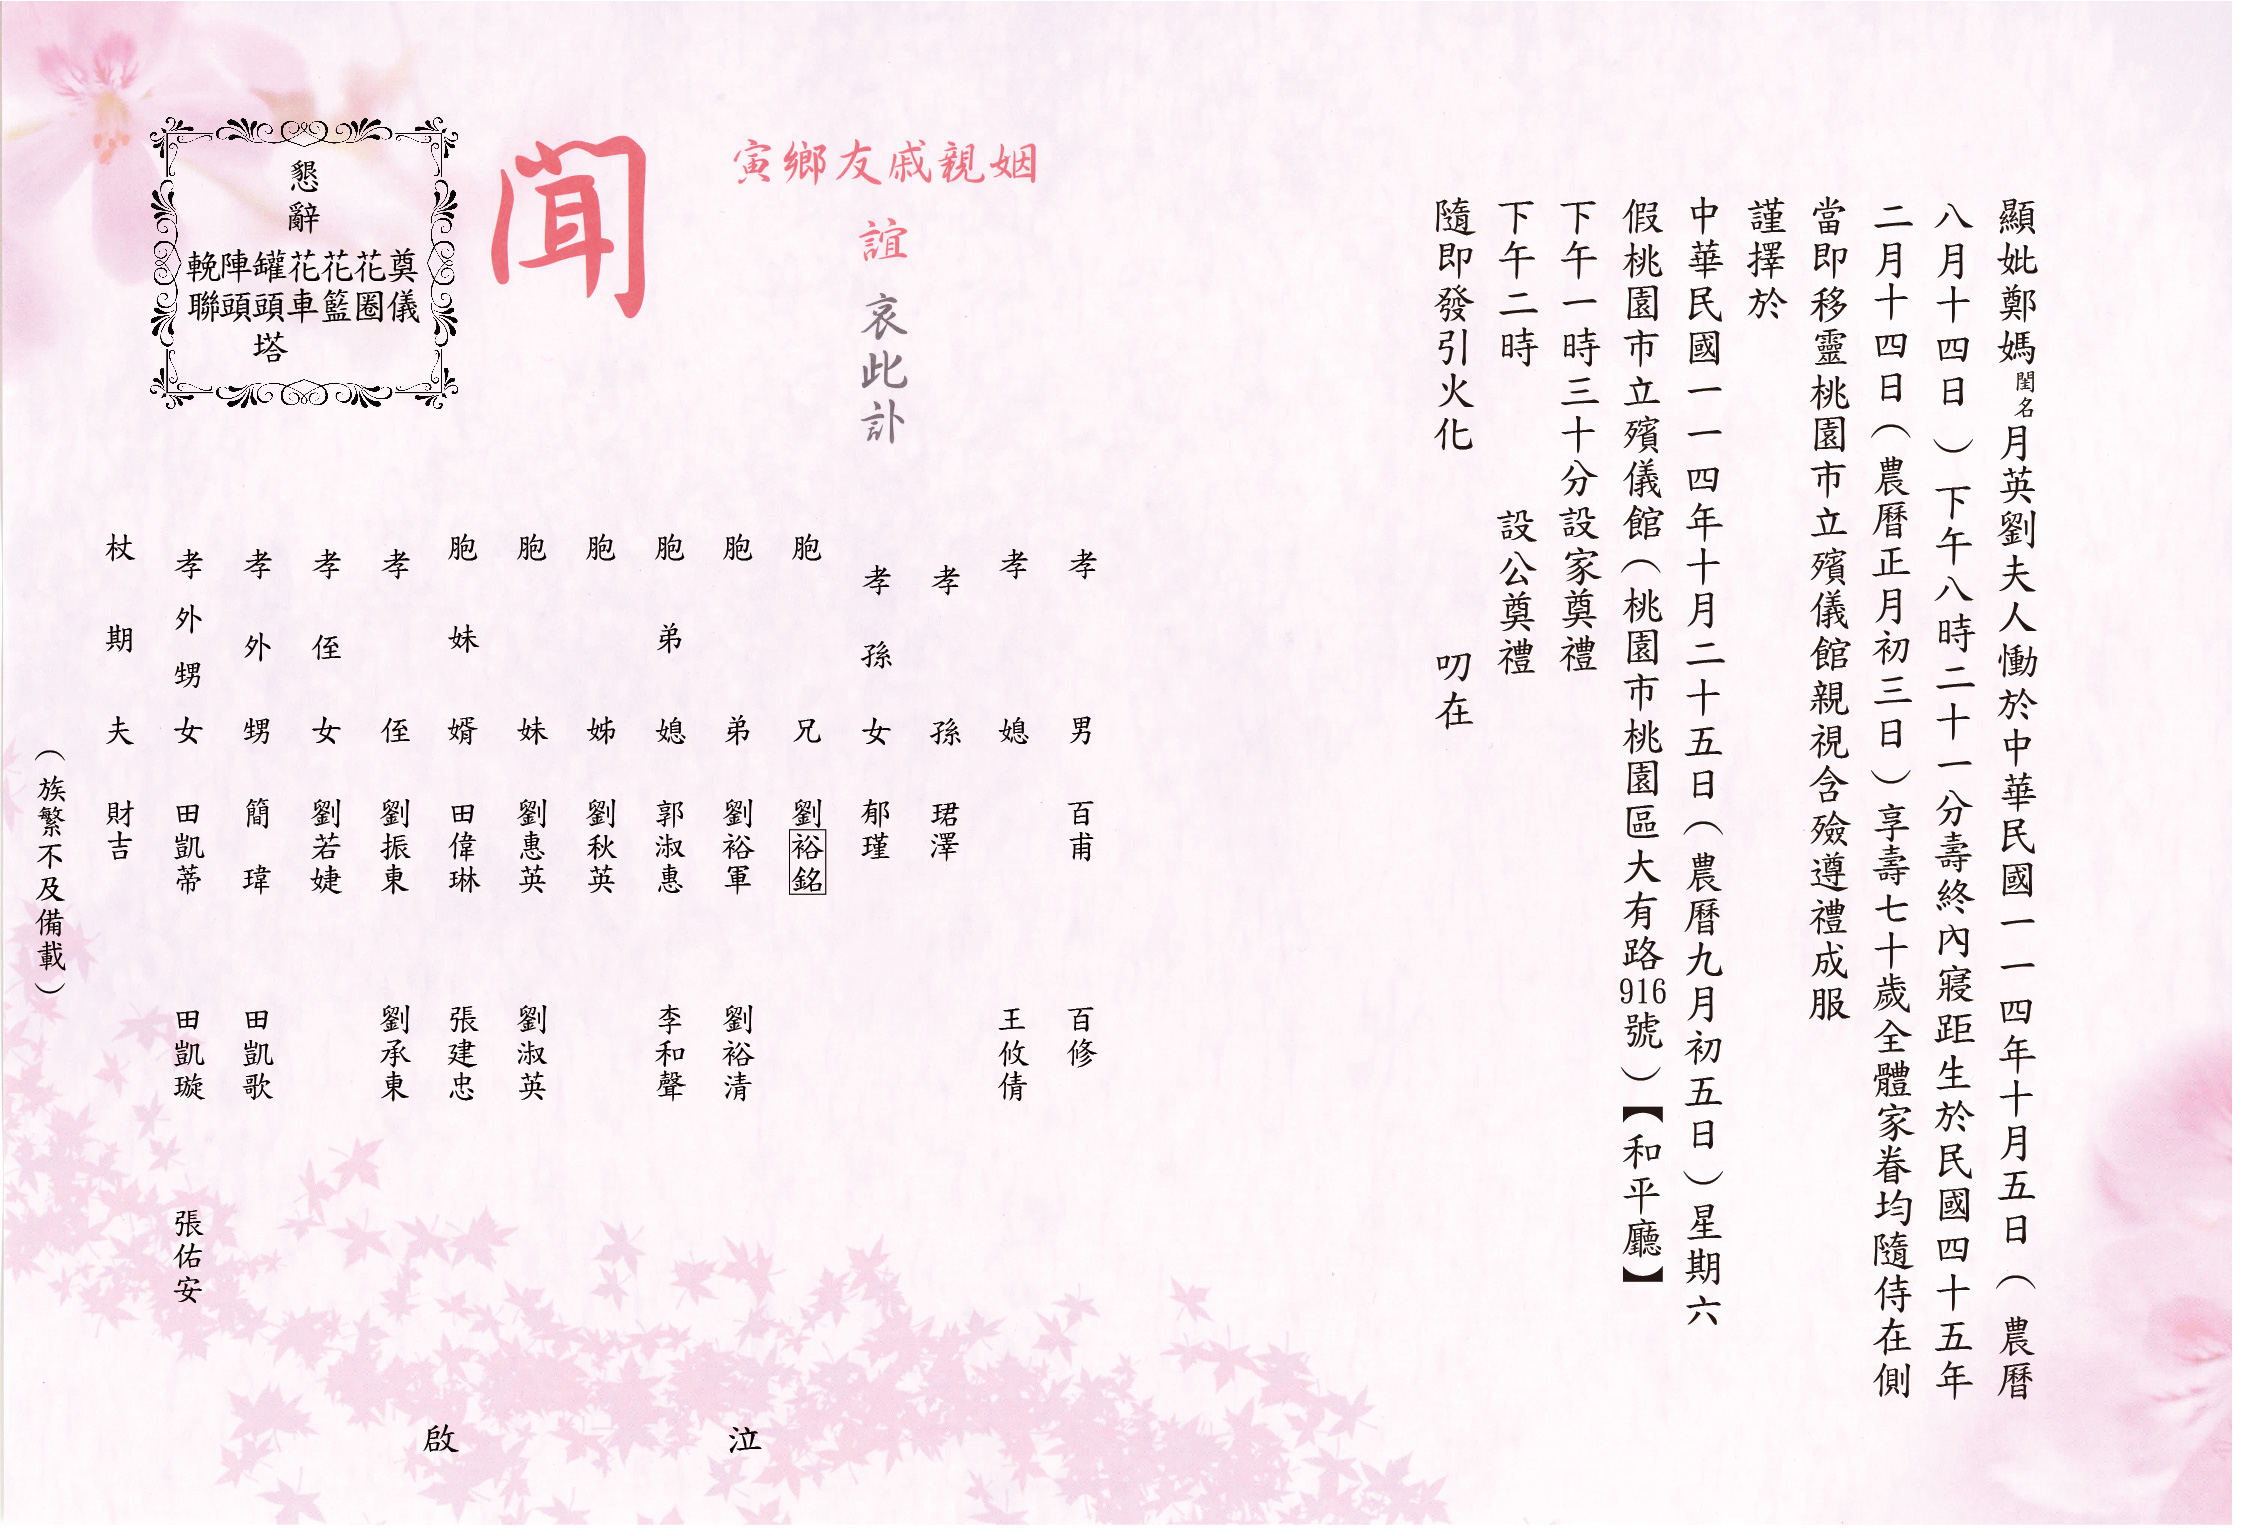 顯妣鄭媽閨名月英劉夫人慟於中華民國一一四年十月五日（農曆
八月十四日）下午八時二十一分壽終內寢距生於民國四十五年
二月十四日（農曆正月初三日）享壽七十歲全體家眷均隨侍在側
當即移靈桃園市立殯儀館親視含殮遵禮成服
謹擇於
中華民國一一四年十月二十五日（農曆九月初五日）星期六
假桃園市立殯儀館（桃園市桃園區大有路916號）【和平廳】
下午一時三十分設家奠禮
下午二時 設公奠禮
隨即發引火化 叨在
姻親戚友鄉寅
誼
哀此訃
聞
孝男 百甫 百修
孝媳 王攸倩
孝孫 珺澤
孝孫女 郁瑾
胞兄 劉裕銘
胞弟 劉裕軍 劉裕清
胞弟媳 郭淑惠 李和聲
胞姊 劉秋英
胞妹 劉惠英 劉淑英
胞妹婿 田偉琳 張建忠
孝侄 劉振東 劉承東
孝侄女 劉若婕
孝外甥 簡瑋 田凱歌
孝外甥女 田凱蒂 田凱璇 張佑安
杖期夫 財吉
（族繁不及備載）
泣
啟
懇辭
奠儀
花圈
花籃
花車
罐頭塔
陣頭
輓聯